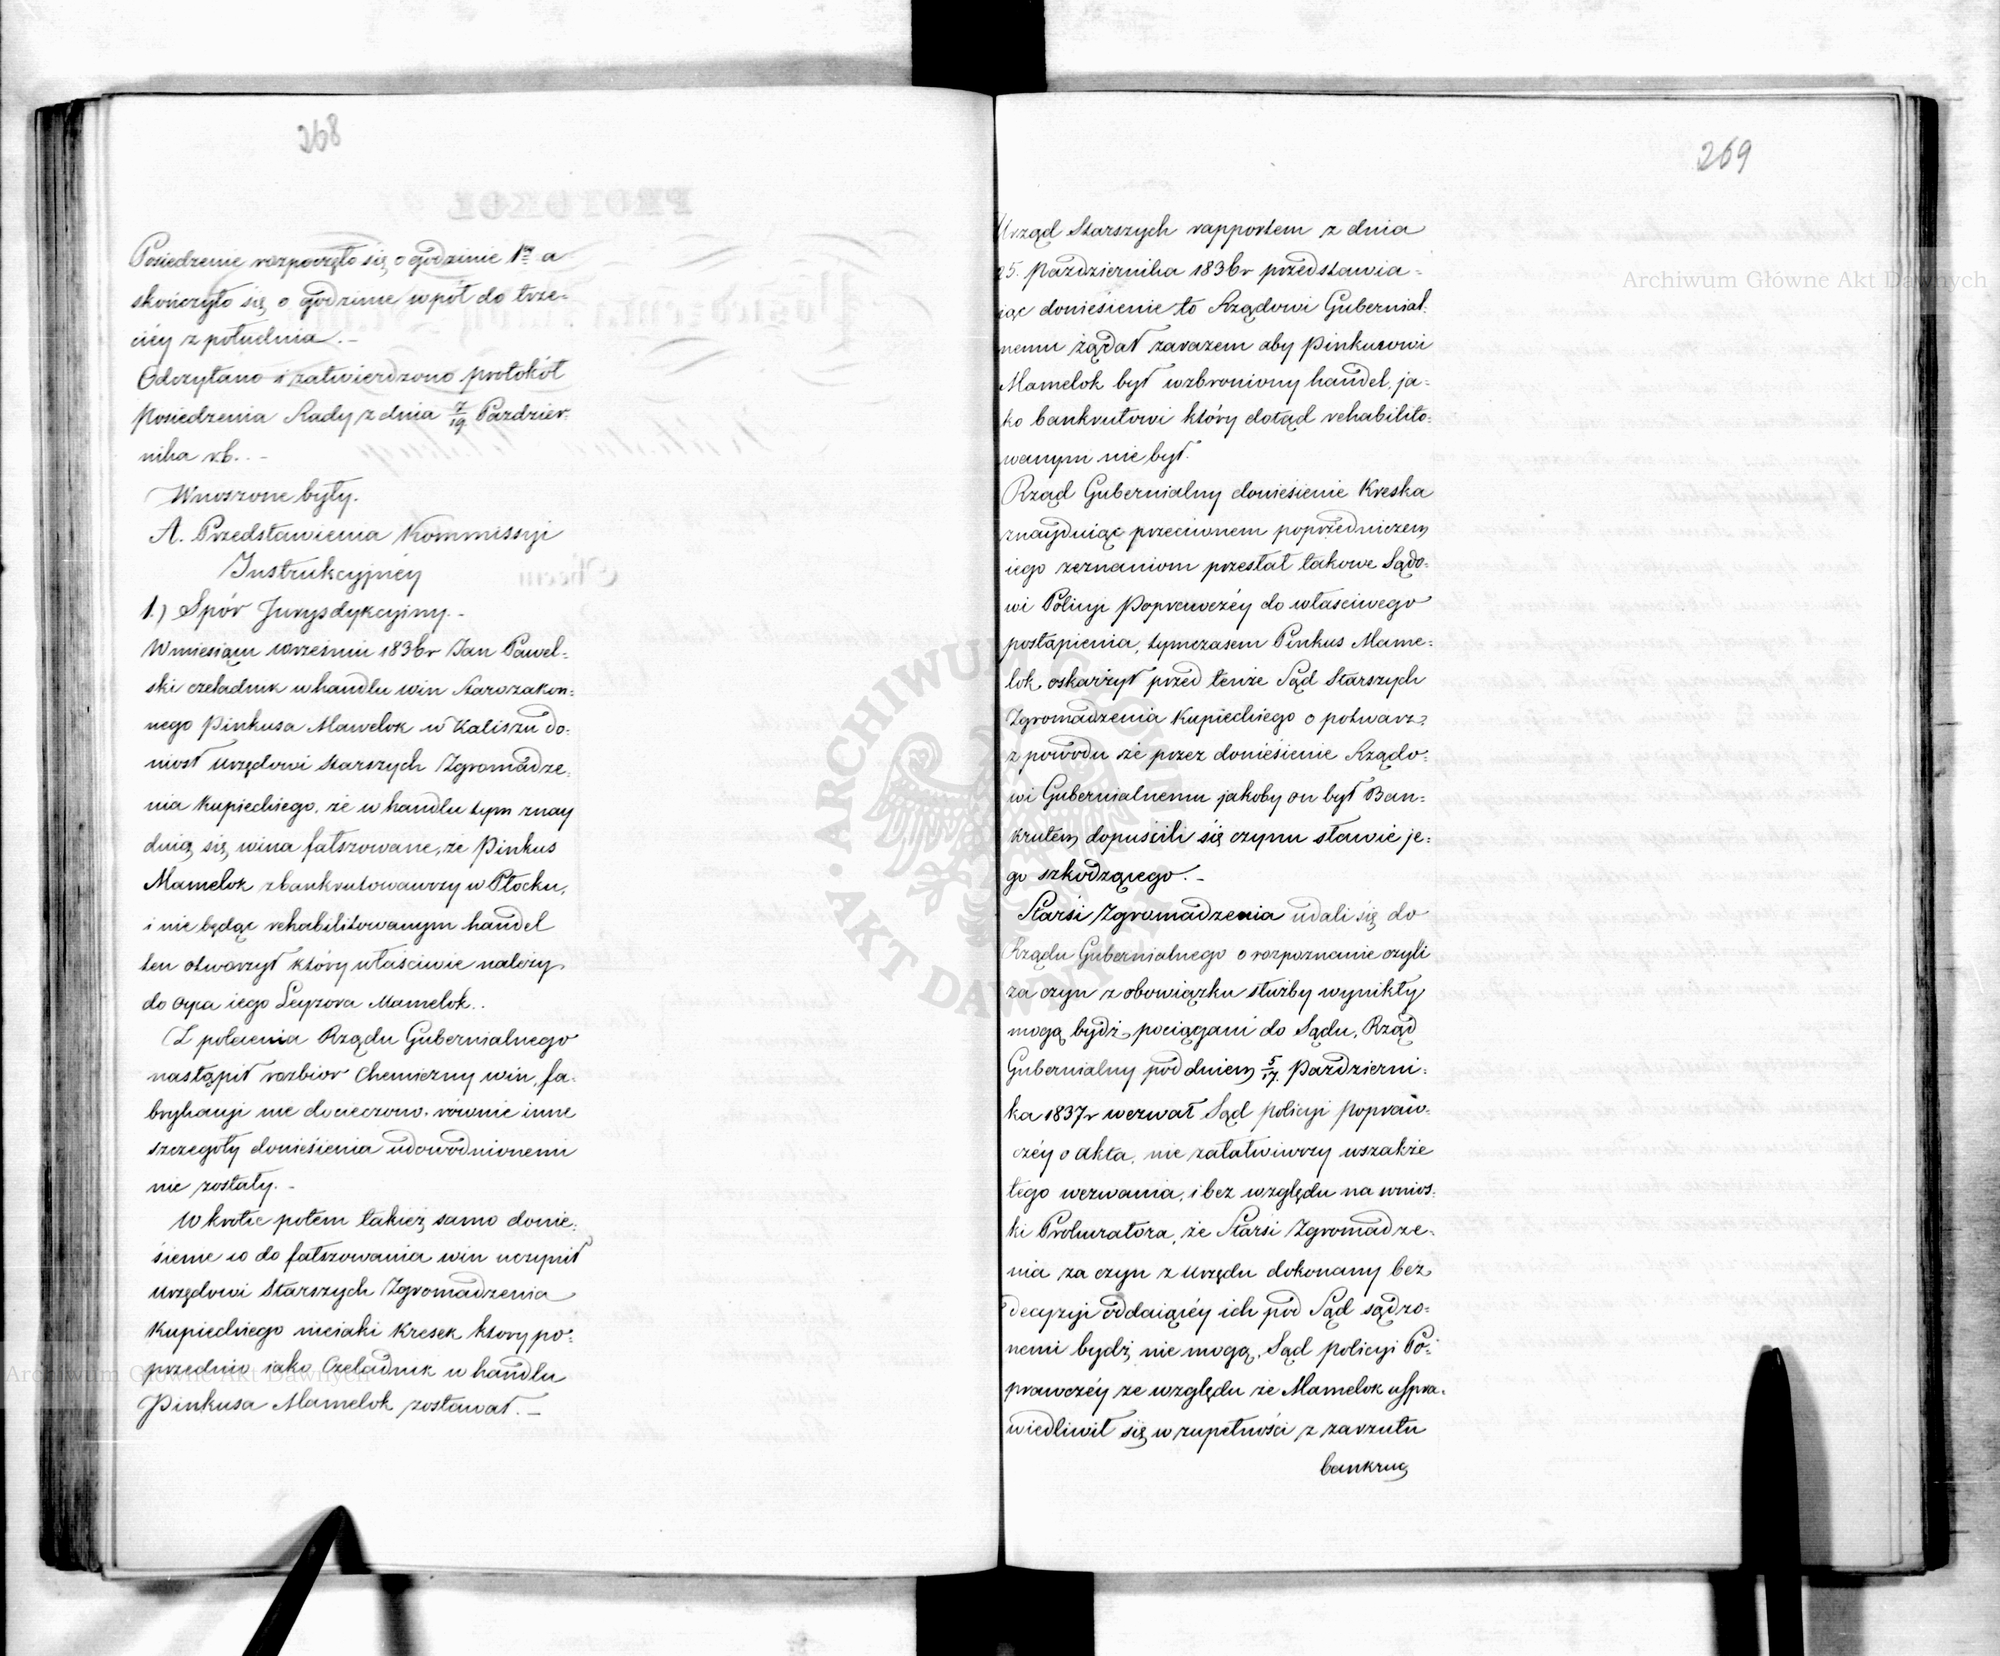 268
Posiedzenie rozpoczęło się o godzinie 1éy a
skończyło się o godzinie wpół do trze=
ciéy z południa. –
Odczytano i zatwierdzono protokół
Posiedzenia Rady z dnia 7/19 Pazdzier=
nika r.b. –
Wnoszone były.
A. Przedstawienia Kommissyi
Instrukcyjnéy
1.) Spór Jurysdykcyjny. –
W miesiącu wrześniu 1836r Jan Pawel=
ski czeladnik w handlu win Starozakon=
nego Pinkusa Mamelok w Kaliszu do=
niosł urzędowi Starszych Zgromadze=
nia Kupieckiego, że w handlu tym znay
duią się wina fałszowane, że Pinkus
Mamelok zbankrutowawszy w Płocku,
i nie będąc rehabilitowanym handel
ten otworzył który właściwie należy
do oyca iego Leyzora Mamelok.
Z polecenia Rządu Gubernialnego
nastąpił rozbior Chemiczny win, fa=
brykacyi nie docieczono. równie inne
szczegóły doniesienia udowodnionemi
nie zostały. –
W krotce potem takież samo donie=
sienie co do fałszowania win uczynił
urzędowi Starszych Zgromadzenia
Kupieckiego nieiaki Kresek ktory po=
przednio iako Czeladnik w handlu
Pinkusa Mamelok zostawał. –
269
Urząd Starszych rapportem z dnia
25. Pazdziernika 1836r przedstawia=
iąc doniesienie to Rządowi Gubernial=
nemu żądał zarazem aby Pinkusowi
Mamelok był wzbroniony handel, ja=
ko bankrutowi który dotąd rehabilito=
wanym nie był.
Rząd Gubernialny doniesienie Kreska
znayduiąc przeciwnem poprzedniczem
iego zeznaniom przesłał takowe Sądo=
wi Policyi Poprawczéy do właściwego
postąpienia, tymczasem Pinkus Mame=
lok oskarżył przed tenże Sąd Starszych
Zgromadzenia Kupieckiego o potwarz
z powodu że przez doniesienie Rządo=
wi Gubernialnemu jakoby on był Ban=
krutem dopuścili się czynu sławie je=
go szkodzącego. –
Starsi Zgromadzenia udali się do
Rządu Gubernialnego o rozpoznanie czyli
za czyn z obowiązku służby wynikły
mogą bydź pociągani do Sądu, Rząd
Gubernialny pod dniem 5/17 Pazdzierni=
ka 1837r wezwał Sąd policyi popraw=
czéy o akta, nie załatwiwszy wszakże
tego wezwania, i bez względu na wnios=
ki Prokuratora, że Starsi Zgromadze=
nia za czyn z urzędu dokonany bez
decyzyi oddaiącéy ich pod Sąd sądzo=
nemi bydź nie mogą, Sąd policyi Po=
prawczéy ze względu że Mamelok uspra=
wiedliwił się w zupełności z zarzutu
bankruc
Archiwum Główne Akt Dawnych
Archiwum Główne Akt Dawnych
ARCHIWUM GŁÓWNE AKT DAWNYCH